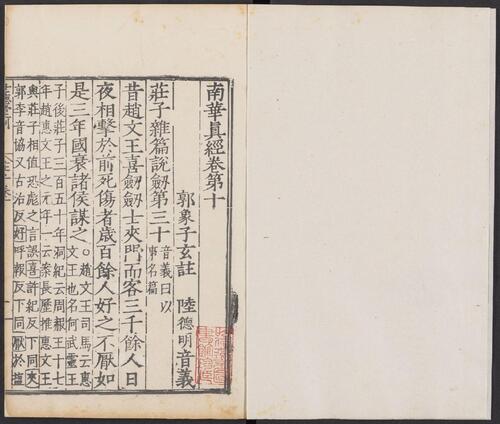 南華真經卷第十
郭象子玄註 陸德明音義
莊子雜篇說劒第三十 音義曰以事名篇
昔趙文王喜劒劒士夾門而客三千餘人日
夜相擊於前死傷者歲百餘人好之不厭如
是三年國衰諸侯謀之。趙文王司馬云惠文王也名何武靈王
子後莊子三百五十年洞紀云周赧王十七
年趙惠文王之元年一云案長歷推惠文王
與莊子相值恐彪之言誤喜許紀反下同夾
郭李音協又古洽反好呼報反下同厭於鹽